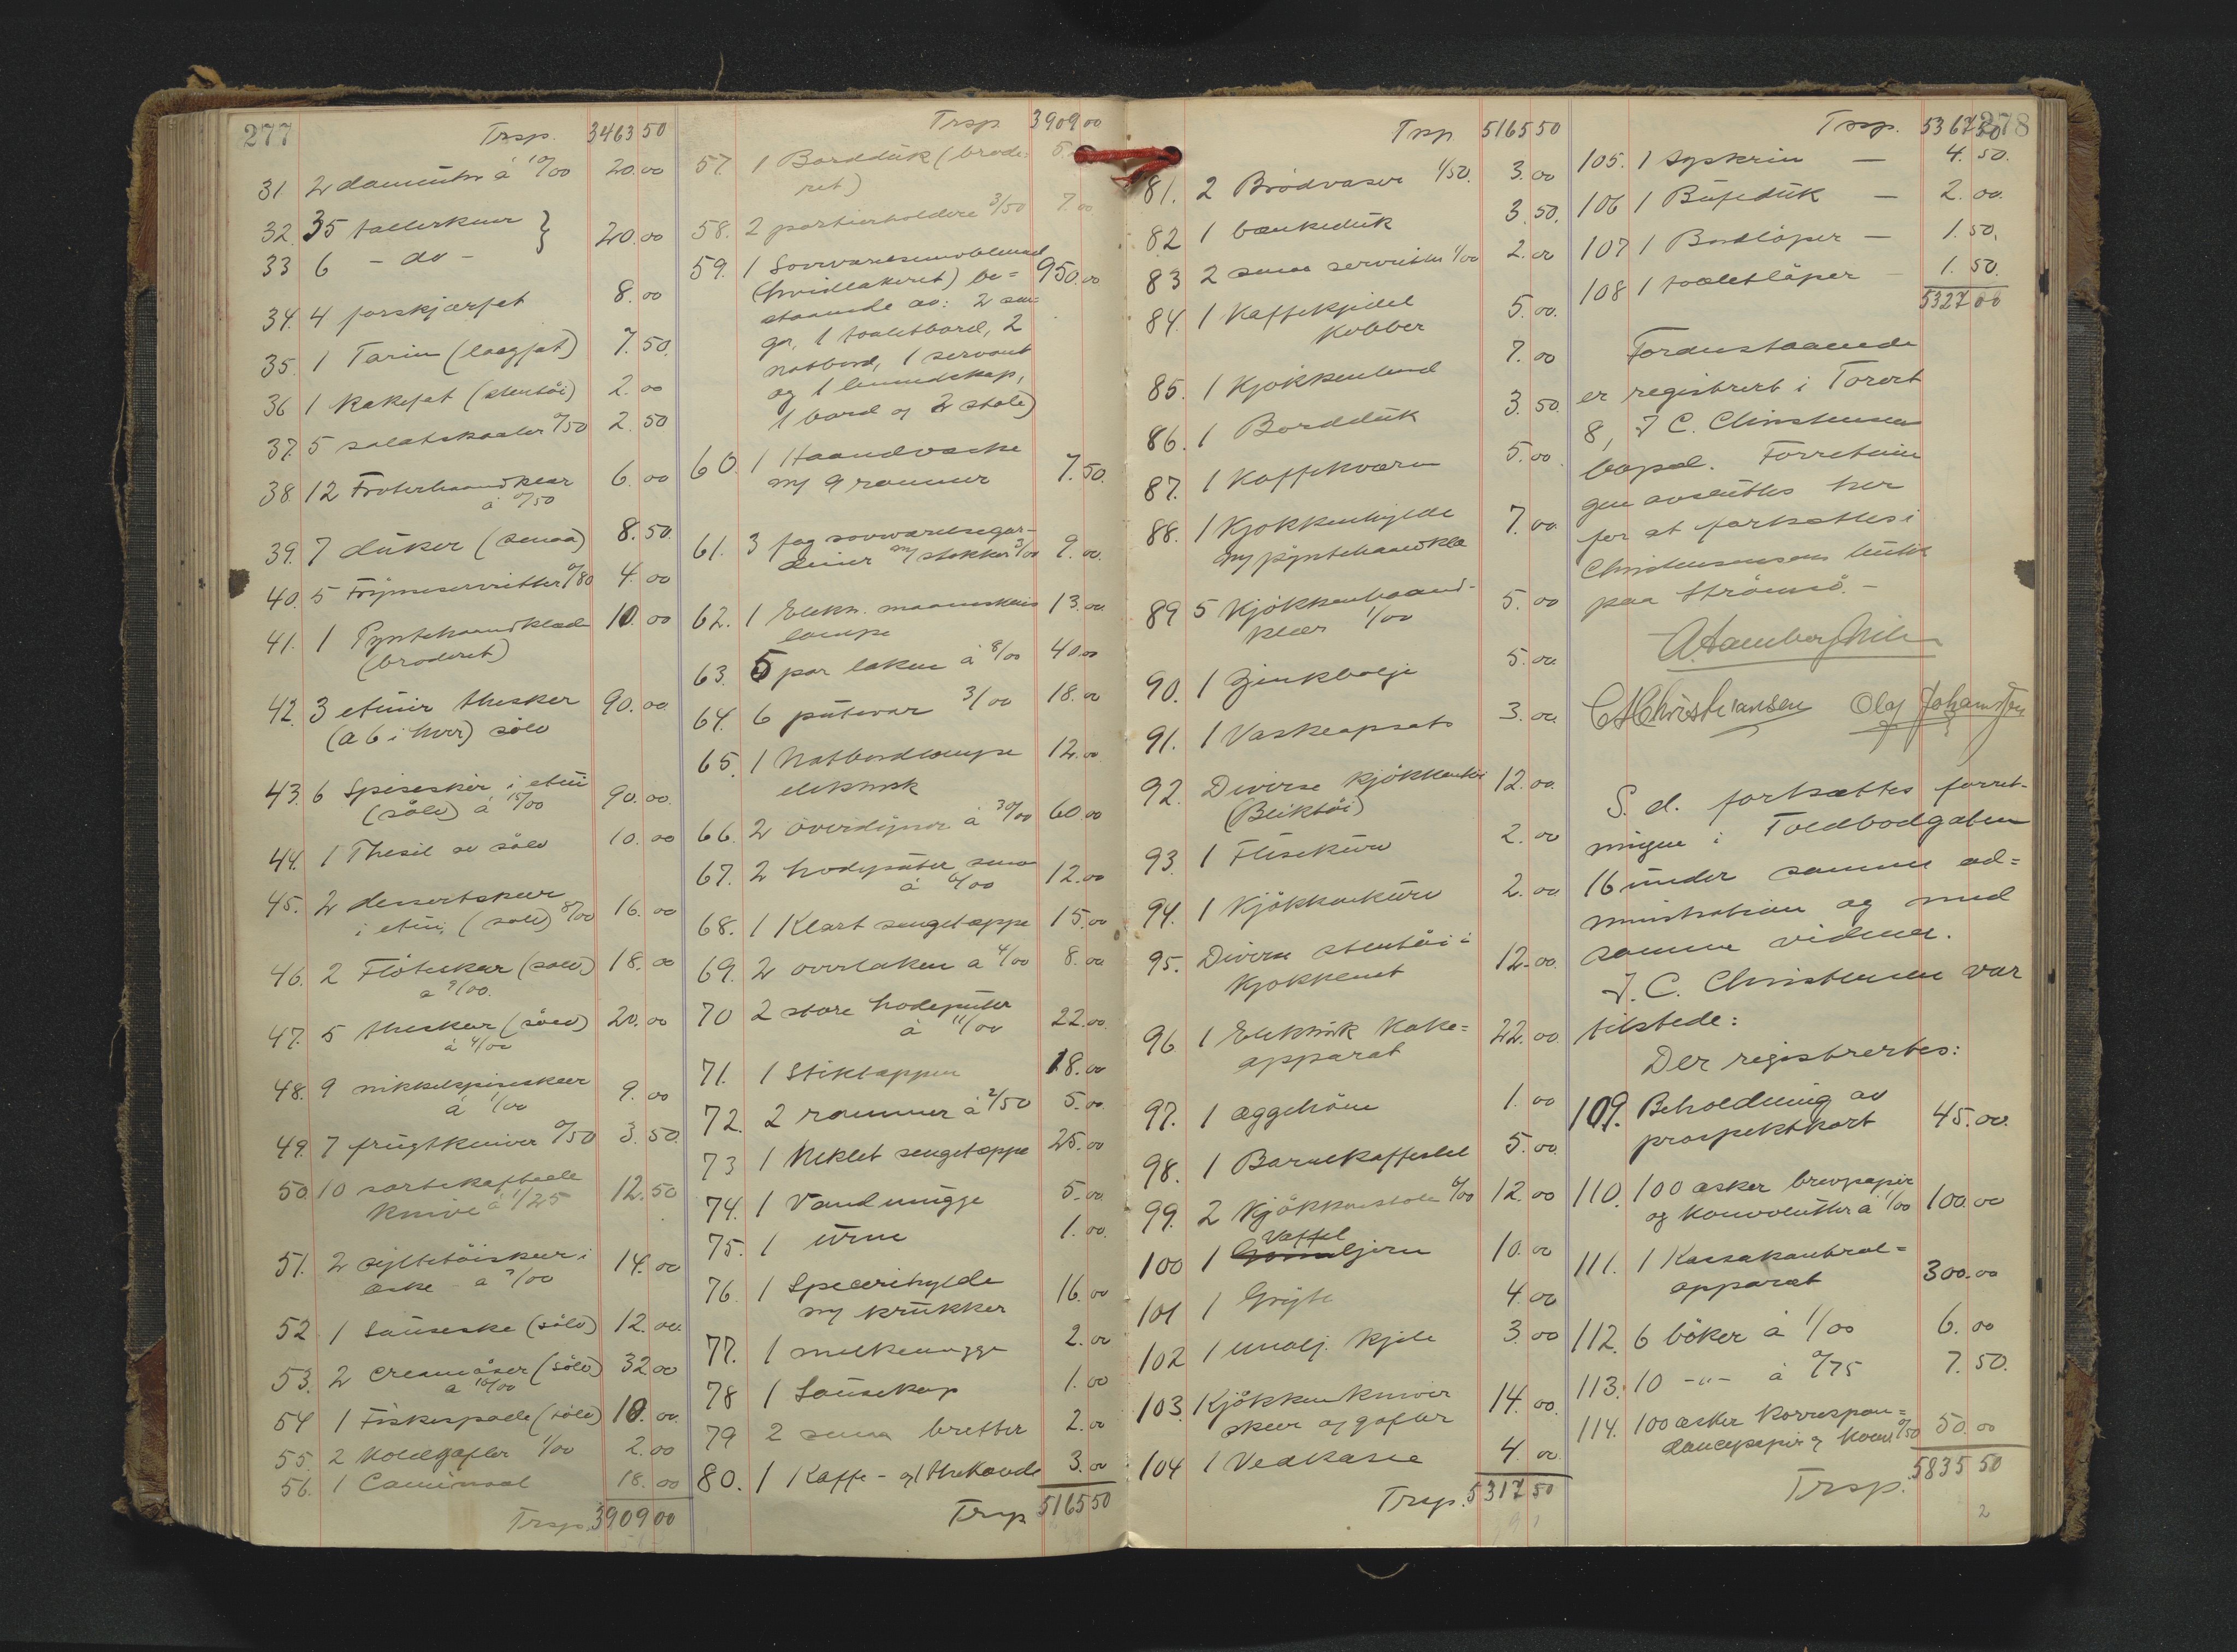 277
Trsp. 3463 50
31 2 à 10/00 20.00
32. 35 tallerkner } 20.00
33 6 - do -
34. 4 forskjærsæt 8.00
35. 1 Tarin (laagfat) 7.50.
36 1 kakefat (stentöi) 2.00
37. 5 salatskaaler 0/50 2.50
38 12 Froterhaandklær 6.00
à 0/50
39. 7 düker (smaa) 8.50.
40. 5 servietter 0/80 4.00
41. 1 Pyntehaandklæde 10.00
(broderet)
42. 3 etuier theskeer 90.00
(à 6 i hver) sölv
43. 6 Spiseskeer i etui 90.00.
(sölv) à 15/00
44. 1 Thesil av sölv 10.00
45. 2 dessertskeer 16.00
i etui, (sölv) 8/00
46. 2 Flöteskeer (sölv) 18.00
a 9/00.
47. 5 theskeer (sölv) 20.00
à 4/00
48. 9 nikkelspiseskeer 9.00
à 1/00
49. 7 frugtkniver 0/50 3.50.
50. 10 sorteskaftede 12.50
knive à 1/25
51. 2 syltetöiskeer i 14.00
æske à 7/00
52. 1 Sauseske (sölv) 12.00.
53. 2 (sölv) 32 00
a 16/00
54 1 Fiskespade (sölv) 10.00.
55. 2 Koldgafler 1/00 2.00
56. 1 18.00
Trsp. 3909 00
Trsp. 3909 00
57. 1 Borddük (brode-
ret)
58. 2 portierholdere 3/50 7.00
59. 1 Soveværelsesmöblement
(hvidlakeret) be= 950.00
staaende av: 2 sen=
ger, 1 toaletbord, 2
natbord, 1 servant
og 1 linnedskap,
1 bord og 2 stole)
60. 1 Haandvæske 7.50.
m/ 9 rammer
61. 3 fag soveværelsegar-
diner m/ stokker 3/00 9.00.
62. 1 Elektr. maaneskins 13.00
lampe
63. 5 par laken à 8/00 40.00
64. 6 pütevar 3/00 18.00
65. 1 Natbordlampe 12.00
elektrisk
66. 2 overdyner à 30/00 60.00
67. 2 hodeputer smaa 12.00
à 6/00
68. 1 sengetæppe 15.00
69. 2 overlaken a 4/00 8.00
70 2 store hodeputer 22.00.
à 11/00
71. 1 Stiktæppe 18.00
72. 2 rammer à 2/50 5.00
73 1 Heklet sengetæppe 25.00
74. 1 Vandmugge 5.00
75. 1 urne 1.00.
76. 1 Specerihylde 16.00
m/ krukker
77. 1 melkemugge 2.00
78 1 Sausekop 1.00
79 2 smaa bretter 2.00
80. 1 Kaffe- og 1 thekande 3.00
Trsp 5165 50
Trsp 5165 50
81. 2 Brödvaser 1/50. 3.00
82 1 bænkedük 3.50.
83 2 smaa servietter 1/00 2.00
84. 1 Kaffekjedel 5.00.
Kobber
85. 1 Kjökkenbord 7.00
86. 1 Borddük 3.50.
87. 1 Kaffekværn 5.00
88. 1 Kjökkenhylde 7.00.
m/ pyntehaandklæ
89 5 Kjökkenhaand- 5.00
klær 1/00
90. 1 Zinkbalje 5.00
91. 1 Vaskeopsats 3.00
92. Diverse kjökkentöi 12.00.
(Bliktöi)
93. 1 Flisekurv 2.00
94. 1 Kjökkenkurv 2.00
95. Diverse stentöi i 12.00.
Kjökkenet
96. 1 Elektrisk Koke= 22.00.
apparat
97. 1 æggehöne 1.00
98. 1 Barnekaffestel 5.00
99. 2 Kjökkenstole 6/00 12.00
100 1 Vaffeljern 10.00
101 1 Gryte 4.00
102 1 emalj. kjele 3.00
103. Kjökkenkniver 14.00.
skeer og gafler
104 1 Vedkasse 4.00
Trsp. 5317 50
278
Trsp. 5367 50
105. 1 Syskrin — 4.50.
106 1 Büfedük — 2.00.
107 1 Bordlöper — 1.50.
108 1 toaletlöper — 1.50.
5327 00
Fordenstaaende
er registrert i Torvet
8, J C. Christensens
bopæl. Forretnin
gen avsluttes her
for at fortsættes i
Christensens butik
paa Strömsö. –
C A Christiansen Olaf Johansen
S. d. fortsættes forret-
ningen i Toldbodgaten
16 under samme ad=
ministration og med
samme vidner.
J. C. Christensen var
tilstede:
Der registrertes:
109. Beholdning av 45.00.
prospektkort
110. 100 æsker brevpapir
og konvolutter à 1/00 100.00
111. 1 Kassakontrol=
apparat 300.00
112. 6 böker à 1/00 6.00
113. 10 -"- à 0/75 7.50.
114. 100 æsker Korrespon=
dancepapir og Konv. 0/50 50.00
5835 50
Trsp.
2